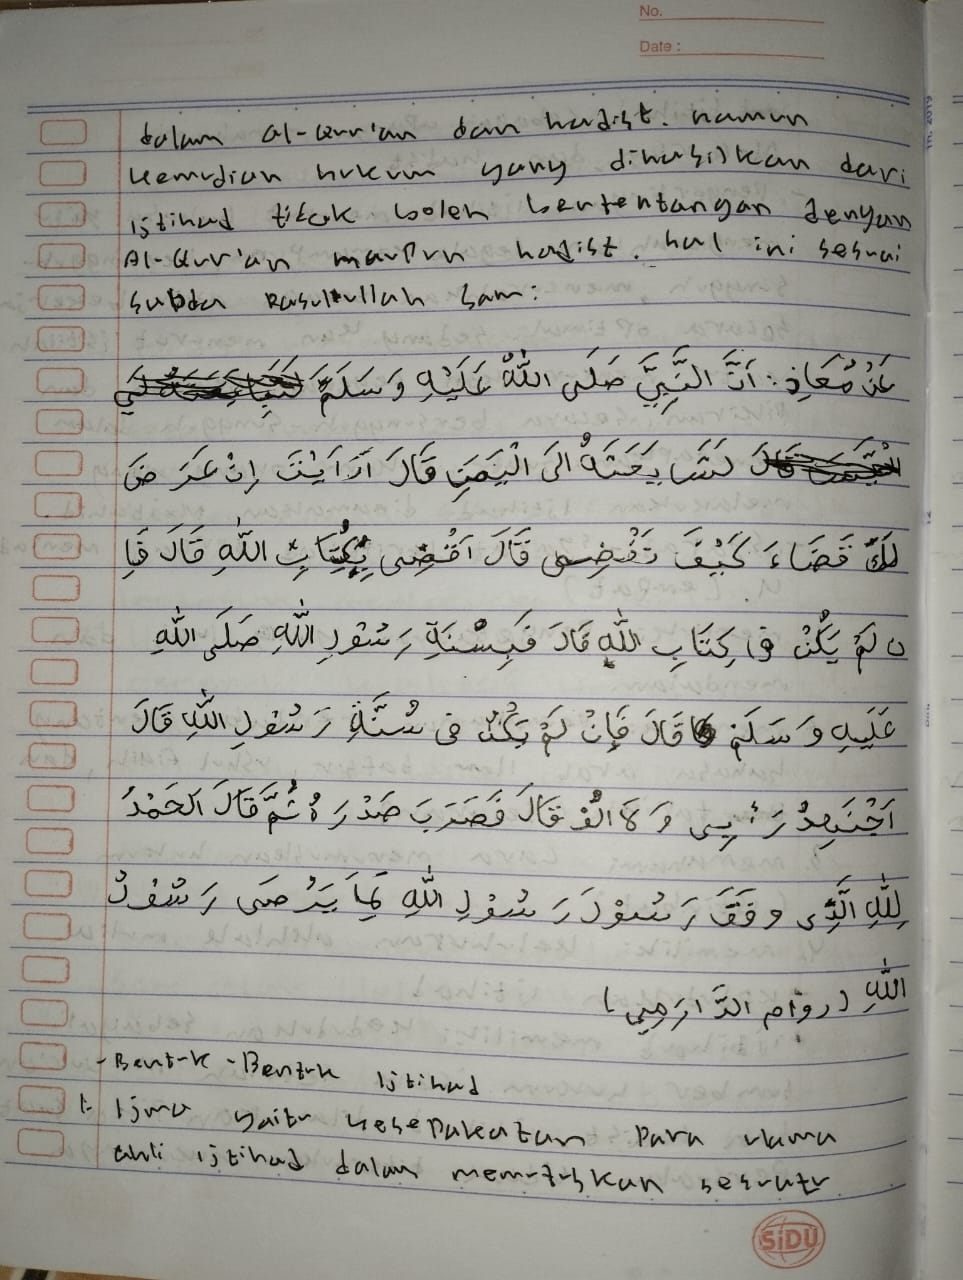 No.
Date :
dalam al-Qur'an dan hadist. namun
kemudian hukum yang dihasilkan dari
ijtihad tidak boleh bertentangan dengan
Al-Qur'an maupun hadist. hal ini sesuai
sabda Rasulullah Saw:
عَنْ مُعَاذٍ : اَنَّ النَّبِيَّ صَلَى اللّٰهُ عَلَيْهِ وَسَلَمَّ
لَمَّا بَعَثَهُ اِلَى الْيَمَنِ قَالَ اَرَاَيْتَ اِنْ عَرَ ضَ
لَكَ قَضَاءَ كَيْفَ تَقْضِى قَالَ اَقْضِى بِكِتَابِ اللّٰهِ قَالَ فَاِ
ن لَمْ يَكُنْ فِى كِتَابِ اللّٰهِ قَالَ فَبِسُنَةِ رَسُوْلِ اللّٰهِ صَلَى اللّٰهِ
عَلَيهِ وَسَلَمْ قَالَ فَاِنْ لَمْ يَكُنْ فِى سُنَّةِ رَسُوْلِ اللّٰهِ قَالَ
اَجْتَهِدُ رَأيِى وَلَا الُف قَالَ فَضَرَبَ صَدْرَهُ ثُمَّ قَالَ الحَمْدُ
لِلّٰهِ الَّذِى وَفَقَ رَسُوْلَ رَسُوْلِ اللّٰهِ لِمَا يَرْضَى رَسُوْلُ
اللّٰهِ (رواه الدَّارَمِي)
-Bentuk -Bentuk Ijtihad
1. Ijma yaitu kesepakatan para ulama
ahli ijtihad dalam memutuskan sesuatu
SiDU